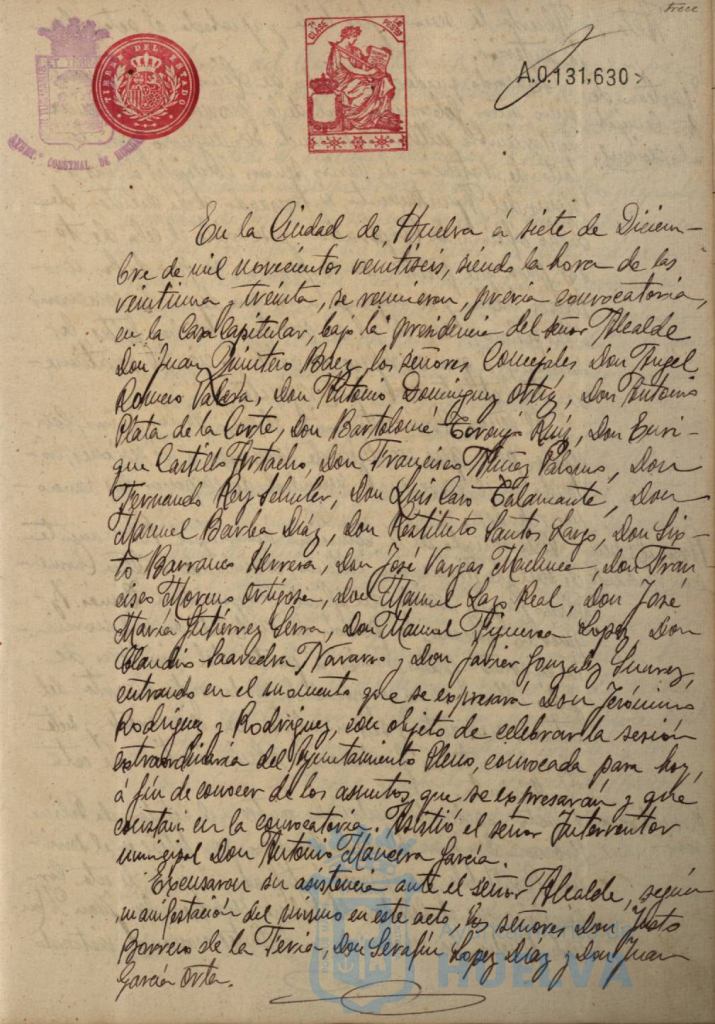 trece
7ª CLASE
TIMBRE DEL ESTADO
A.0.131,630
AYUNTº CONSTNAL DE HUELVA
En la Ciudad de Huelva á siete de Diciem-
bre de mil novecientos veintiseis, siendo la hora de las
veintiuna y treinta, se reunieron, previa convocatoria,
en la Casa Capitular, bajo la presidencia del señor Alcalde
Don Juan Quintero Baez, los señores Concejales Don Angel
Romero Valera, Don Antonio Dominguez Ortíz, Don Antonio
Plata de la Corte, Don Bartolomé Toronjo Ruiz, Don Enri-
que Castillo Artacho, Don Francisco Muñoz Palomo, Don
Fernando Rey Schuler, Don Luis Caro Talamante, Don
Manuel Barba Diáz, Don Restituto Santos Lazo, Don Six-
to Barranco Herrera, Don José Vargas Machuca, Don Fran-
cisco Moreno Ortigosa, Don Manuel Lazo Real, Don José
María Gutiérrez Serra, Don Manuel Figueroa López, Don
Claudio Saavedra Navarro y Don Javier González Suarez,
entrando en el momento que se expresará Don Jerónimo
Rodríguez y Rodríguez, con objeto de celebrar la sesión
extraordinária del Ayuntamiento Pleno, convocada para hoy,
á fin de conocer de los asuntos que se expresarán y que
constan en la convocatoria. Asistió el señor Interventor
municipal Don Antonio Mancera García.
Excusaron su asistencia ante el señor Alcalde, según
manifestación del mismo en este acto, los señores Don Justo
Borrero de la Feria, Don Serafín López Diáz y Don Juan
García Orta.
HUELVA